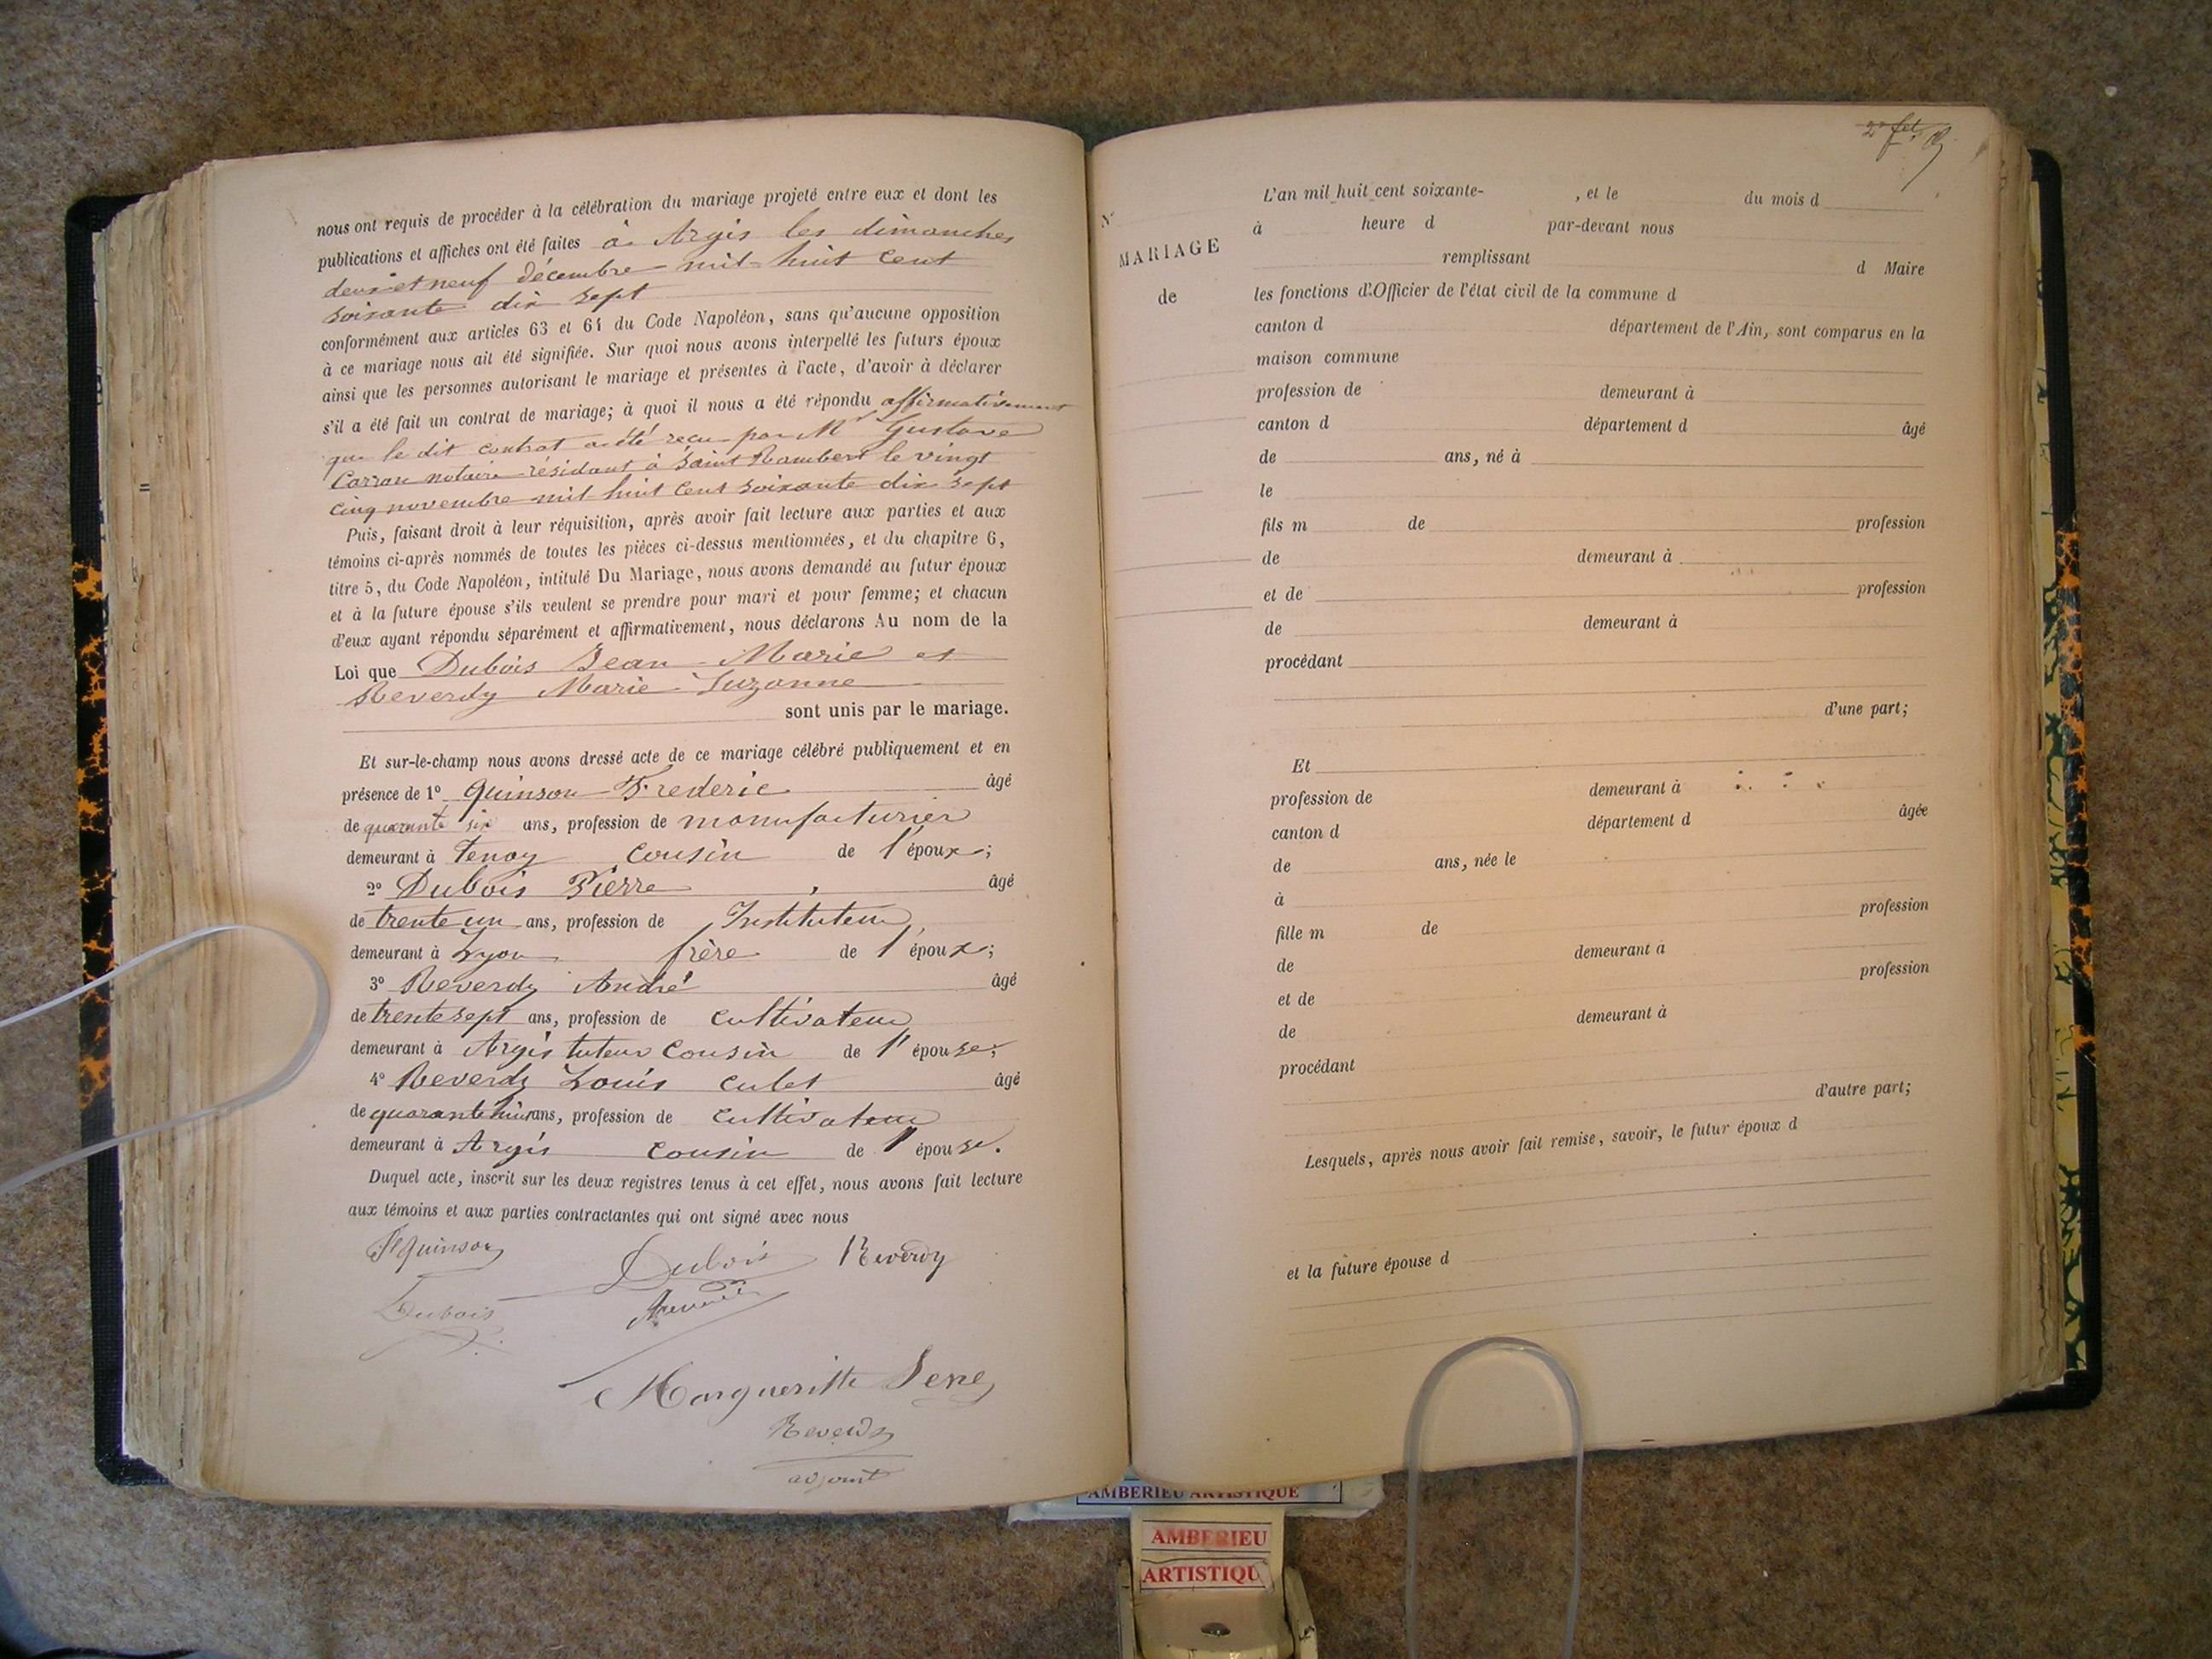 nous ont requis de procéder à la célébration du mariage projeté entre eux et dont les
publications et affiches ont été faites à Argis les dimanches
deux et neuf décembre mil huit cent
soixante dix sept
conformément aux articles 63 et 64 du Code Napoléon, sans qu'aucune opposition
à ce mariage nous ait été signifiée. Sur quoi nous avons interpellé les futurs époux
ainsi que les personnes autorisant le mariage et présentes à l'acte, d'avoir à déclarer
s'il a été fait un contrat de mariage; à quoi il nous a été répondu affirmativement
que le dit contrat a été reçu par Mr Gustave
notaire résidant à Saint Rambert le vingt
cinq novembre mil huit cent soixante dix sept
Puis, faisant droit à leur réquisition, après avoir fait lecture aux parties et aux
témoins ci-après nommés de toutes les pièces ci-dessus mentionnées, et du chapitre 6,
titre 5, du Code Napoléon, intitulé Du Mariage, nous avons demandé au futur époux
et à la future épouse s'ils veulent se prendre pour mari et pour femme; et chacun
d'eux ayant répondu séparément et affirmativement, nous déclarons Au nom de la
Loi que Dubois Jean-Marie et
Reverdy Marie-Suzanne
sont unis par le mariage.
Et sur-le-champ nous avons dressé acte de ce mariage célébré publiquement et en
présence de 1o Quinson Frederic âgé
de quarante six ans, profession de manufacturier
demeurant à Tenay cousin de l'époux;
2o Dubois Pierre âgé
de trente un ans, profession de Instituteur
demeurant à Lyon frère de l'époux;
3o Reverdy André âgé
de trente sept ans, profession de cultivateur
demeurant à Argis tuteur cousin de l'épouse;
4o Reverdy Louis culet âgé
de quarante huit ans, profession de cultivateur
demeurant à Argis cousin de l'épouse.
Duquel acte, inscrit sur les deux registres tenus à cet effet, nous avons fait lecture
aux témoins et aux parties contractantes qui ont signé avec nous
Quinson Dubois Reverdy
Dubois
Margueritte Sene
Reverdy
adjoint
No
MARIAGE
de
L'an mil huit cent soixante- , et le du mois d
à heure d par-devant nous
remplissant d Maire
les fonctions d'Officier de l'état civil de la commune d
canton d département de l'Ain, sont comparus en la
maison commune
profession de demeurant à
canton d département d âgé
de ans, né à
le
fils m de profession
de demeurant à
et de profession
de demeurant à
procédant
d'une part;
Et
profession de demeurant à
canton d département d âgée
de ans, née le
à
fille m de profession
de demeurant à
et de profession
de demeurant à
procédant
d'autre part;
Lesquels, après nous avoir fait remise, savoir, le futur époux d
et la future épouse d
AMBERIEU ARTISTIQUE
AMBERIEU
ARTISTIQU